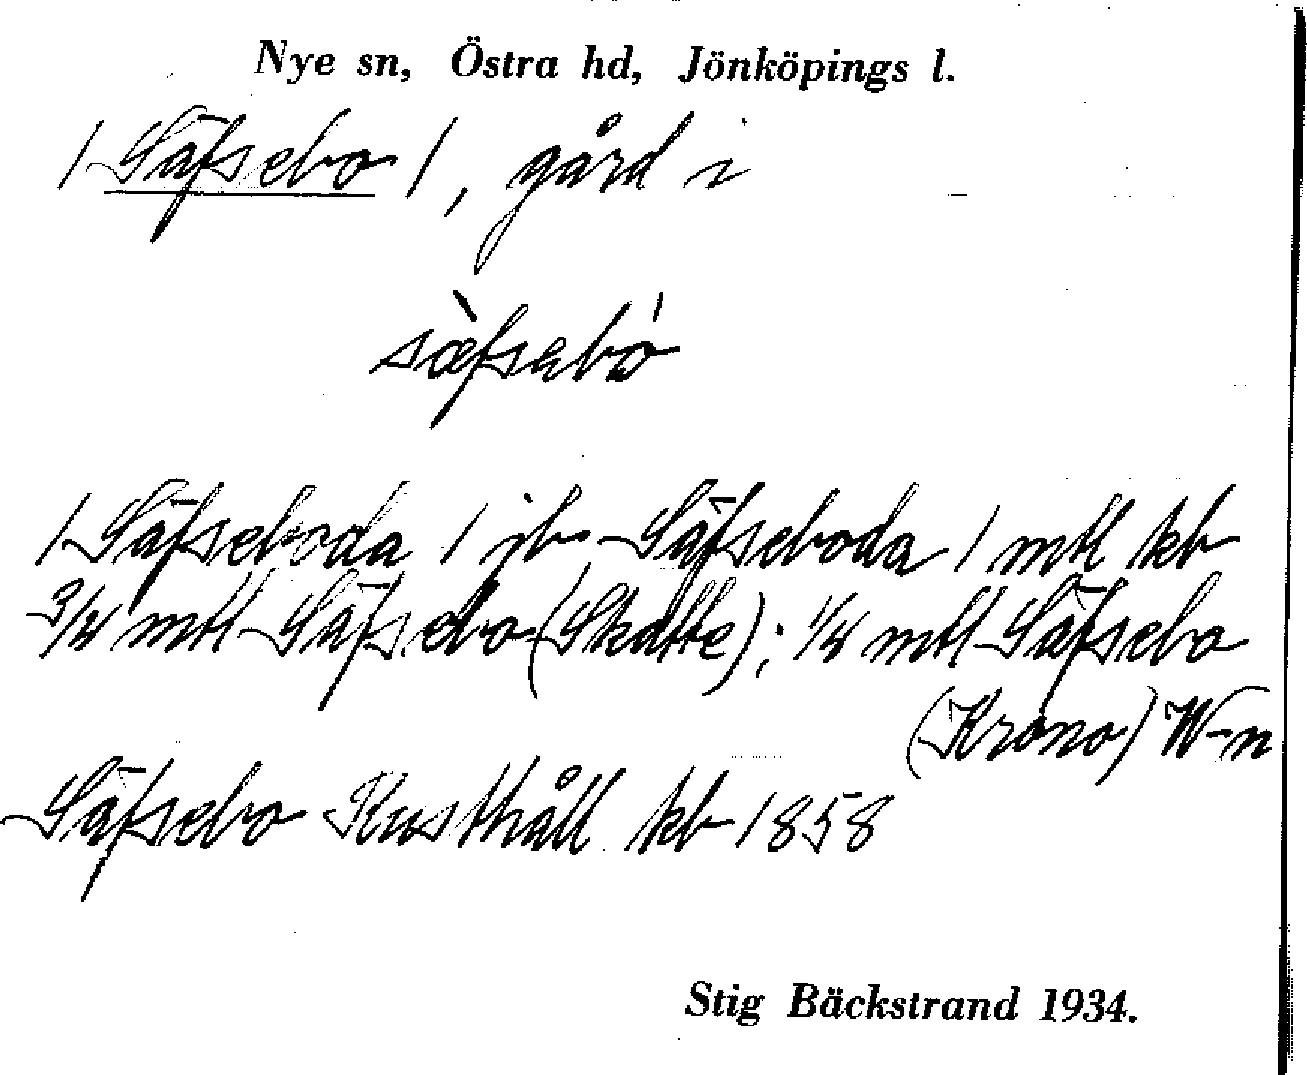 Nye sn, Östra hd, Jönköpings l.
/Säfsebo/, gård i
sæ̀fsebó
/Säfseboda/ jb Säfseboda 1 mtl kb
3/4 mtl Säfsebo (Skatte); 1/4 mtl Säfsebo
(Krono) W-n
Säfsebo Rusthåll kb 1858
Stig Bäckstrand 1934.